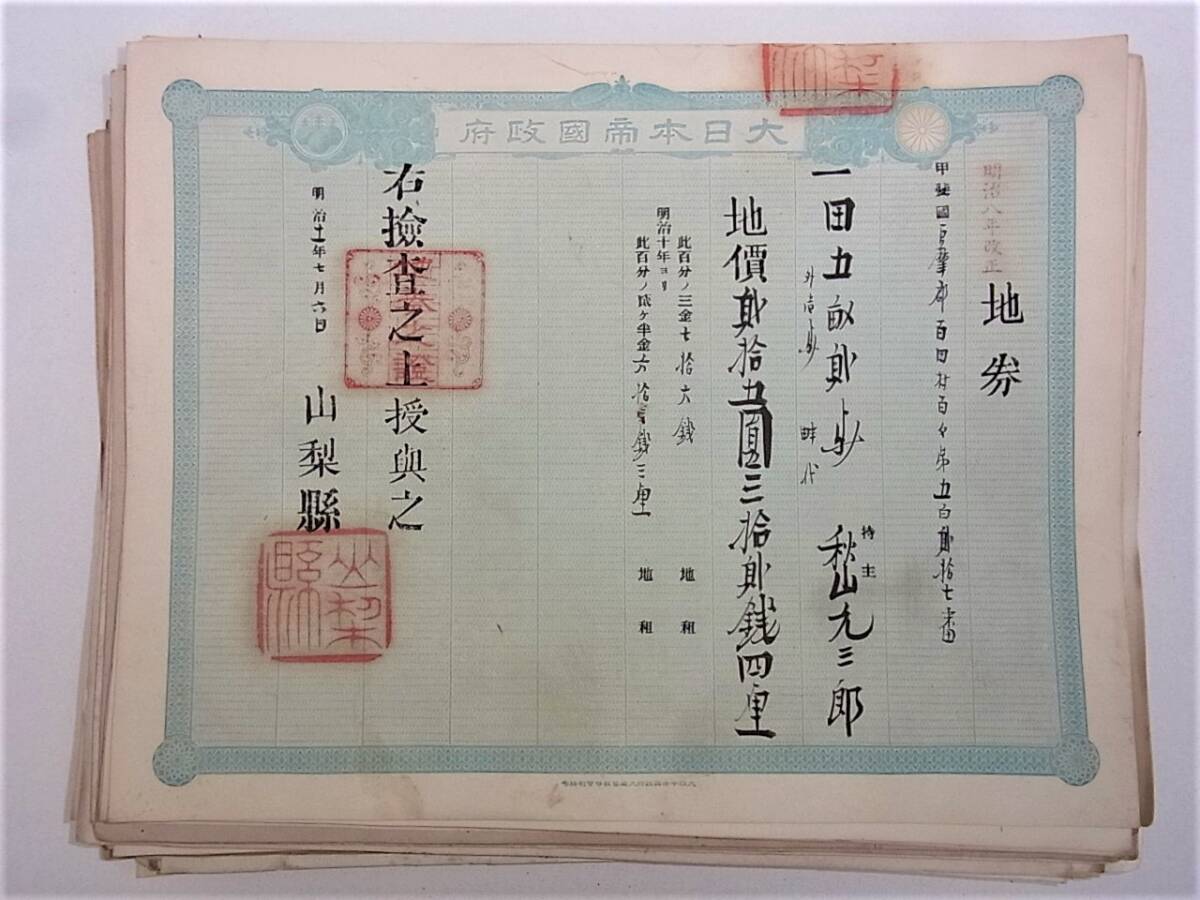 大日本帝國政府
明治八年改正
地券
甲斐國巨摩郡百田村百々第五百貳拾七番
一田五畝貳歩
持主
秋山九三郎
畔代
地價貳拾五圓三拾貳錢四厘
此百分ノ三金七拾六錢 地租
明治十年ヨリ
此百分ノ貳ヶ半金六拾三錢三厘 地租
右撿査之上授與之
明治十一年七月六日
山梨縣